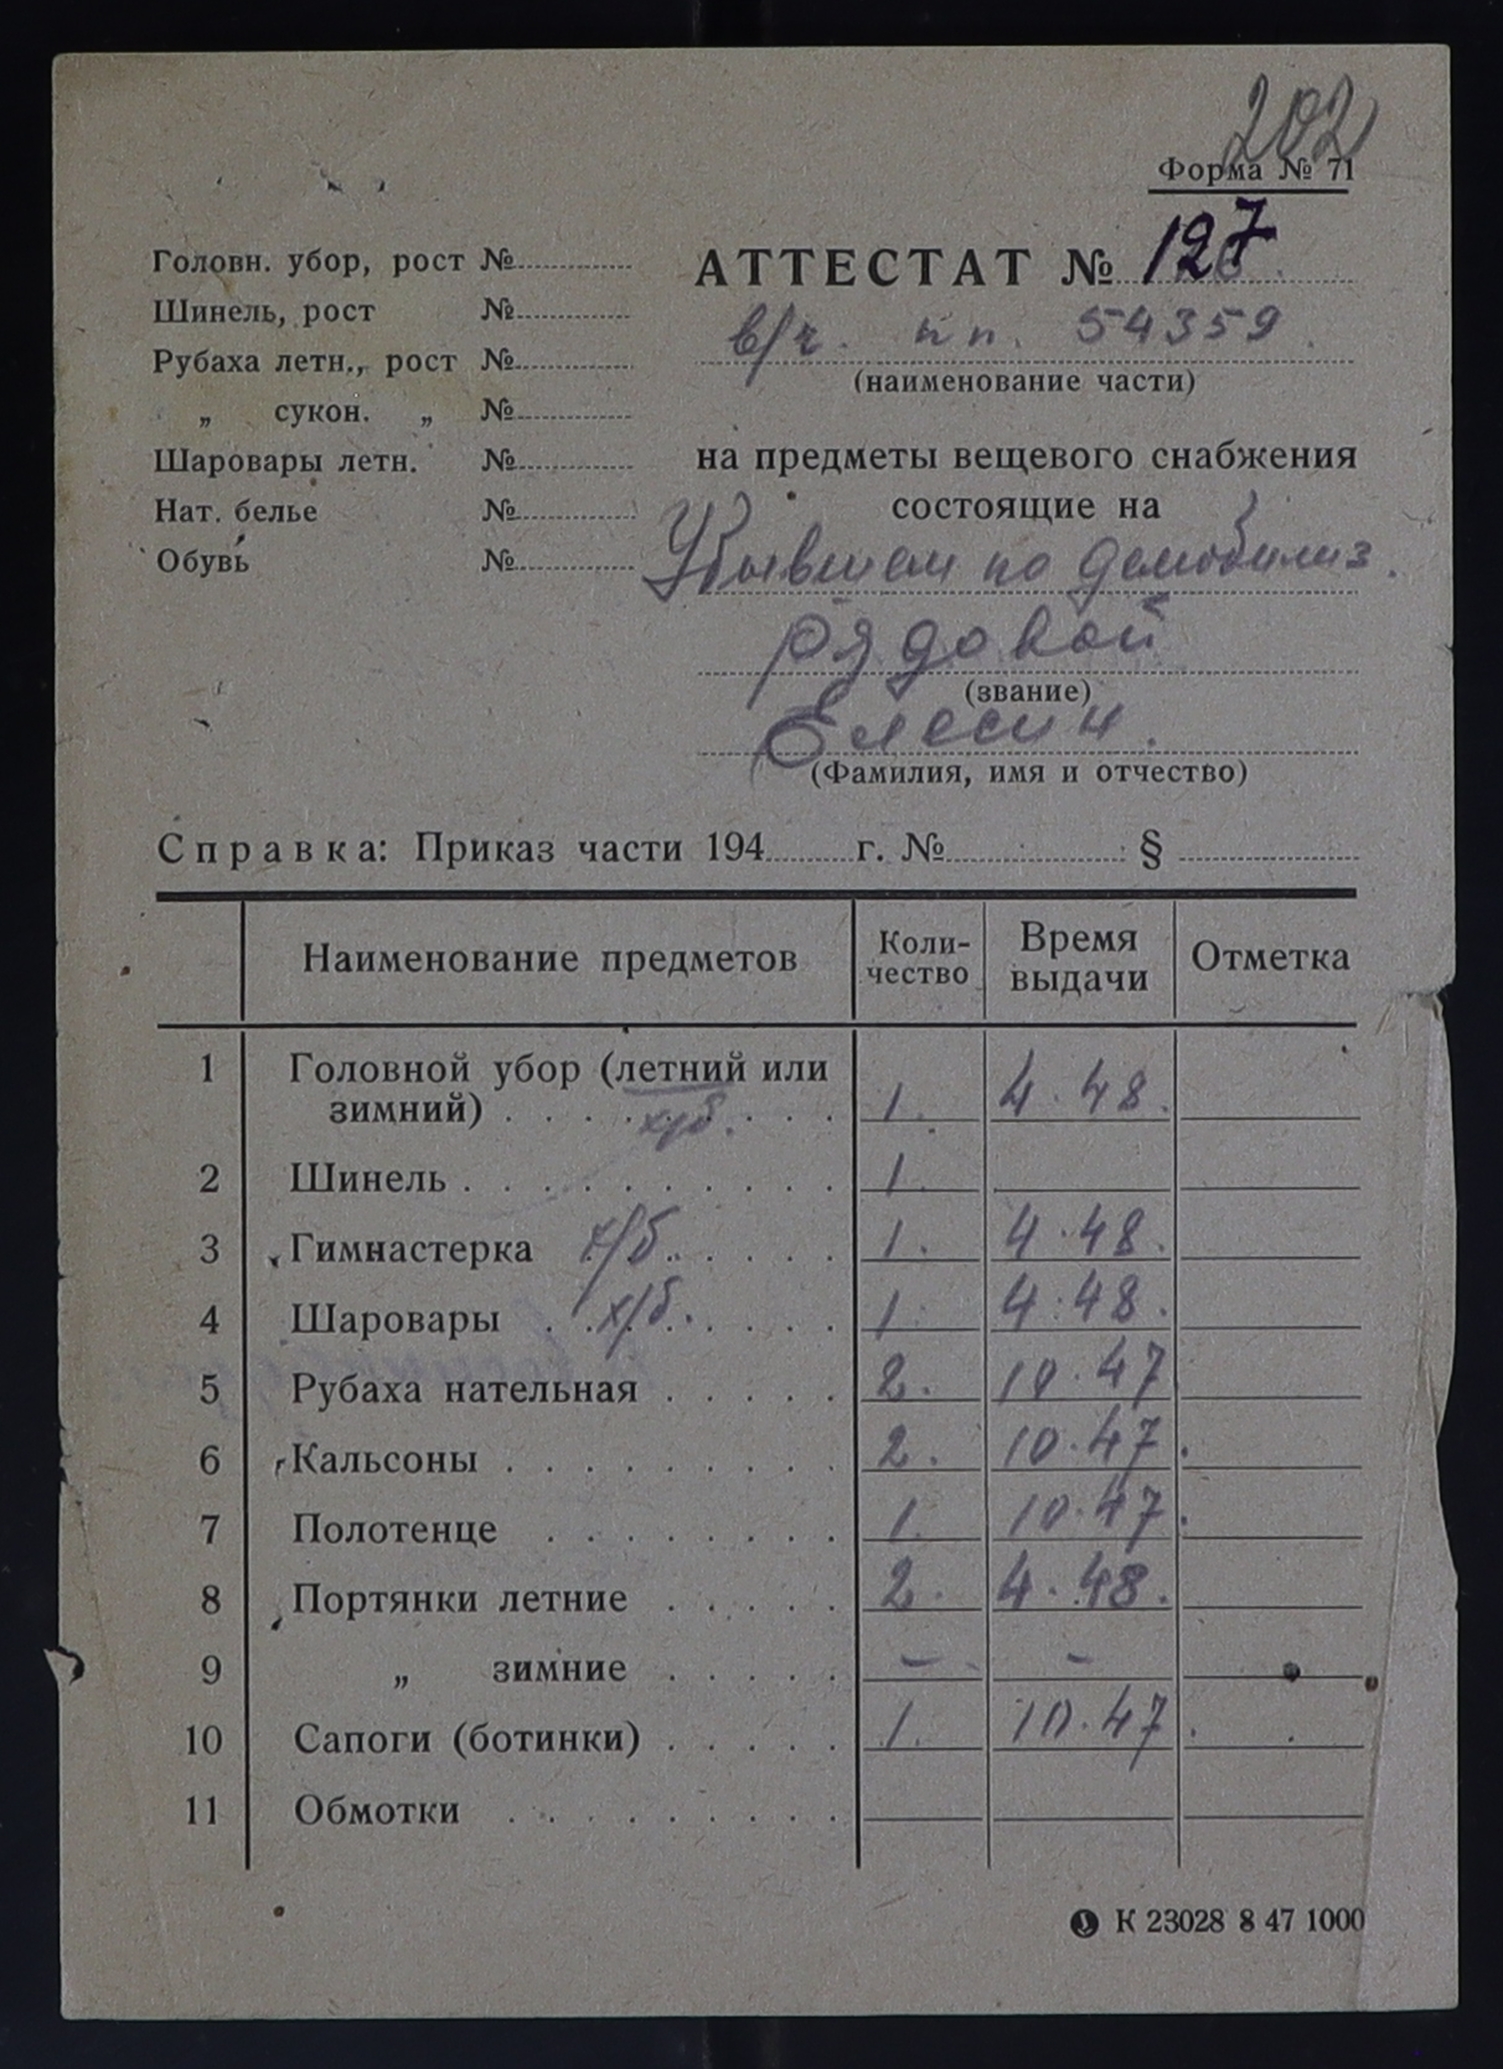 202
Форма № 71
Головн. убор, рост №
Шинель, рост №
Рубаха летн., рост №
„ сукон. „ №
Шаровары летн. №
Нат. белье №
Обувь №
АТТЕСТАТ № 127
в/ч. пп. 54359.
(наименование части)
на предметы вещевого снабжения
состоящие на
Убывшем по демобилиз.
рядовой
(звание)
Елесин.
(Фамилия, имя и отчество)
Справка: Приказ части 194 г. № §
Наименование предметов Коли-чество Время выдачи Отметка
1 Головной убор (летний или
зимний) х/б. 1. 4.48.
2 Шинель 1.
3 Гимнастерка х/б. 1. 4.48.
4 Шаровары х/б. 1. 4.48.
5 Рубаха нательная 2. 10.47
6 Кальсоны 2. 10.47.
7 Полотенце 1. 10.47.
8 Портянки летние 2. 4.48.
9 „ зимние - -
10 Сапоги (ботинки) 1. 10.47.
11 Обмотки
К 23028 8 47 1000